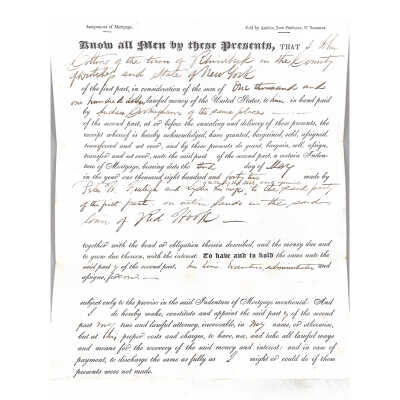 Assignment of Mortgage. Sold by
Know all Men by these Presents, THAT I John
of the town of Rhinebeck in the County
and State of New York
of the first part, in consideration of the sum of One thousand and
lawful money of the United States, to me in hand paid
by of the same place
of the second part, at or before the ensealing and delivery of these presents, the
receipt whereof is hereby acknowledged, have granted, bargained, sold, assigned,
transferred and set over, and by these presents do grant, bargain, sell, assign,
transfer and set over, unto the said part of the second part, a certain Inden-
ture of Mortgage, bearing date the day of May
in the year one thousand eight hundred and forty made by
Peter and wife, to the
of the first part on certain lands in the said
town of Red Hook
together with the bond or obligation therein described, and the money due and
to grow due thereon, with the interest. To have and to hold the same unto the
said part y of the second part, his heirs executors, administrators and
assigns, for
subject only to the proviso in the said Indenture of Mortgage mentioned. And
I do hereby make, constitute and appoint the said part y of the second
part my true and lawful attorney, irrevocable, in my name, or otherwise,
but at his proper costs and charges, to have, use, and take all lawful ways
and means for the recovery of the said money and interest; and in case of
payment, to discharge the same as fully as I might or could do if these
presents were not made.